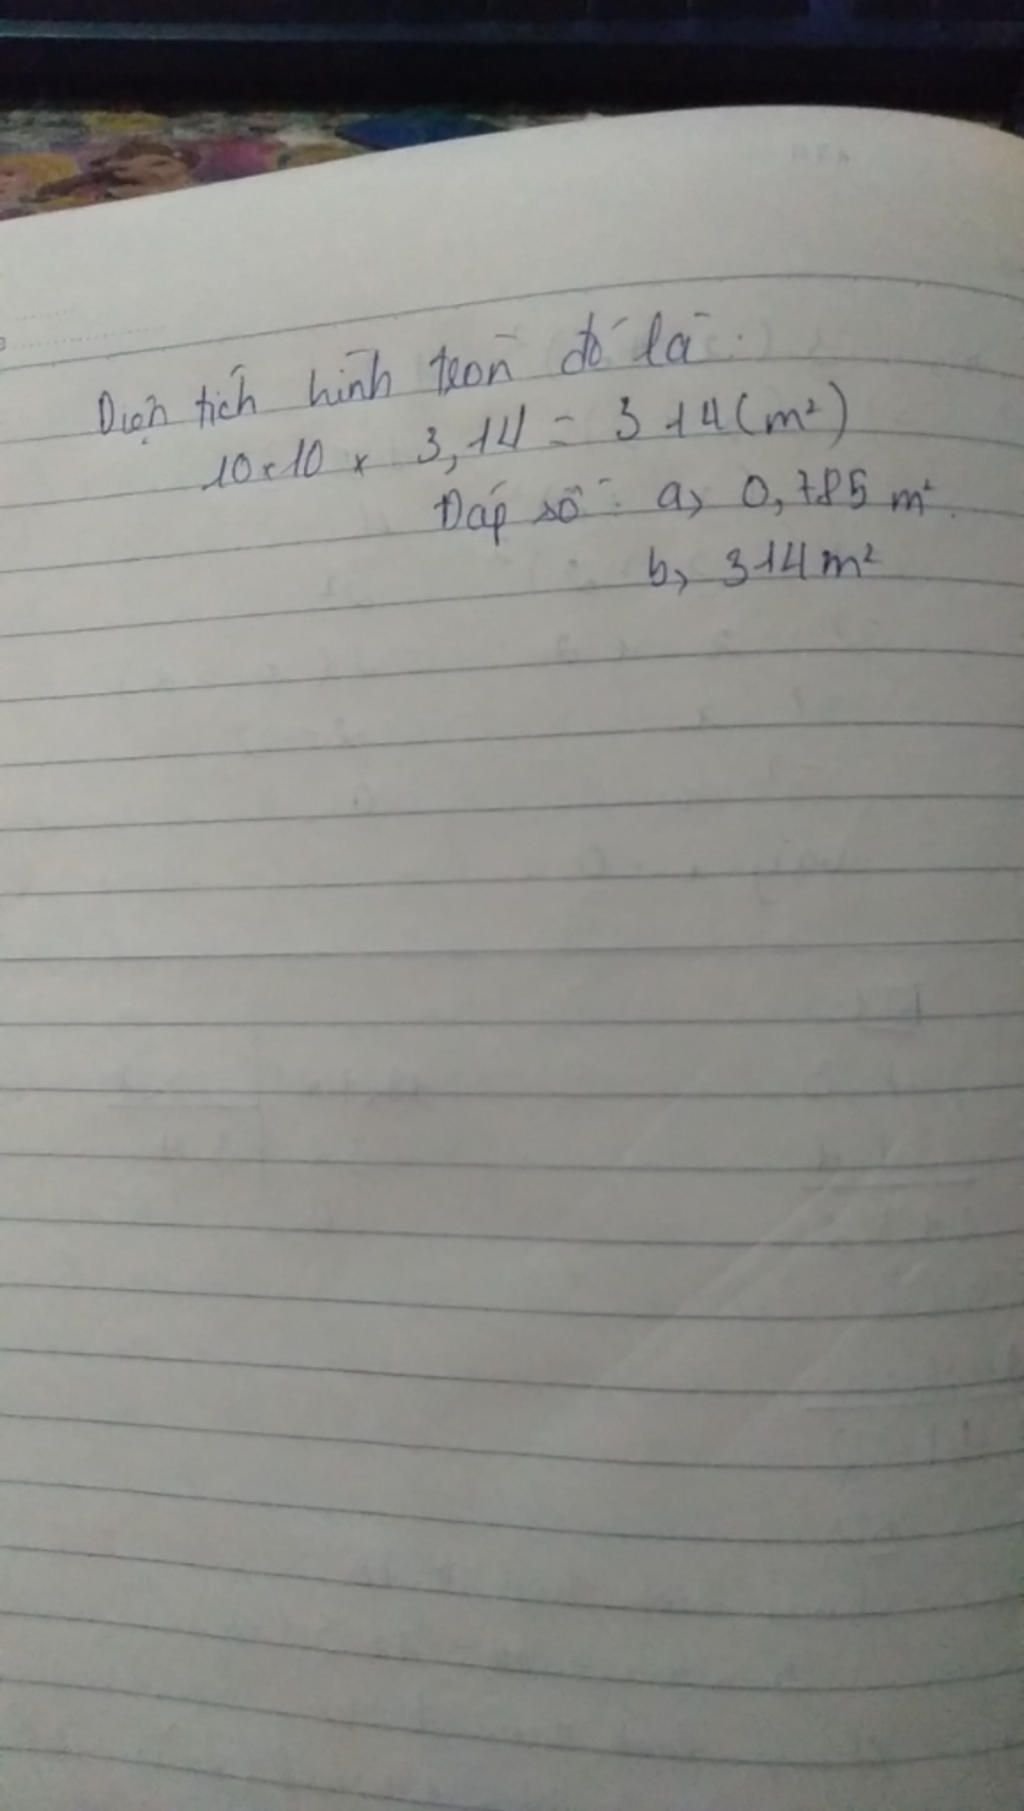 Diện tích hình tròn đó là:
10 x 10 x 3,14 = 314 (m²)
Đáp số: a, 0,785 m².
b, 314 m²